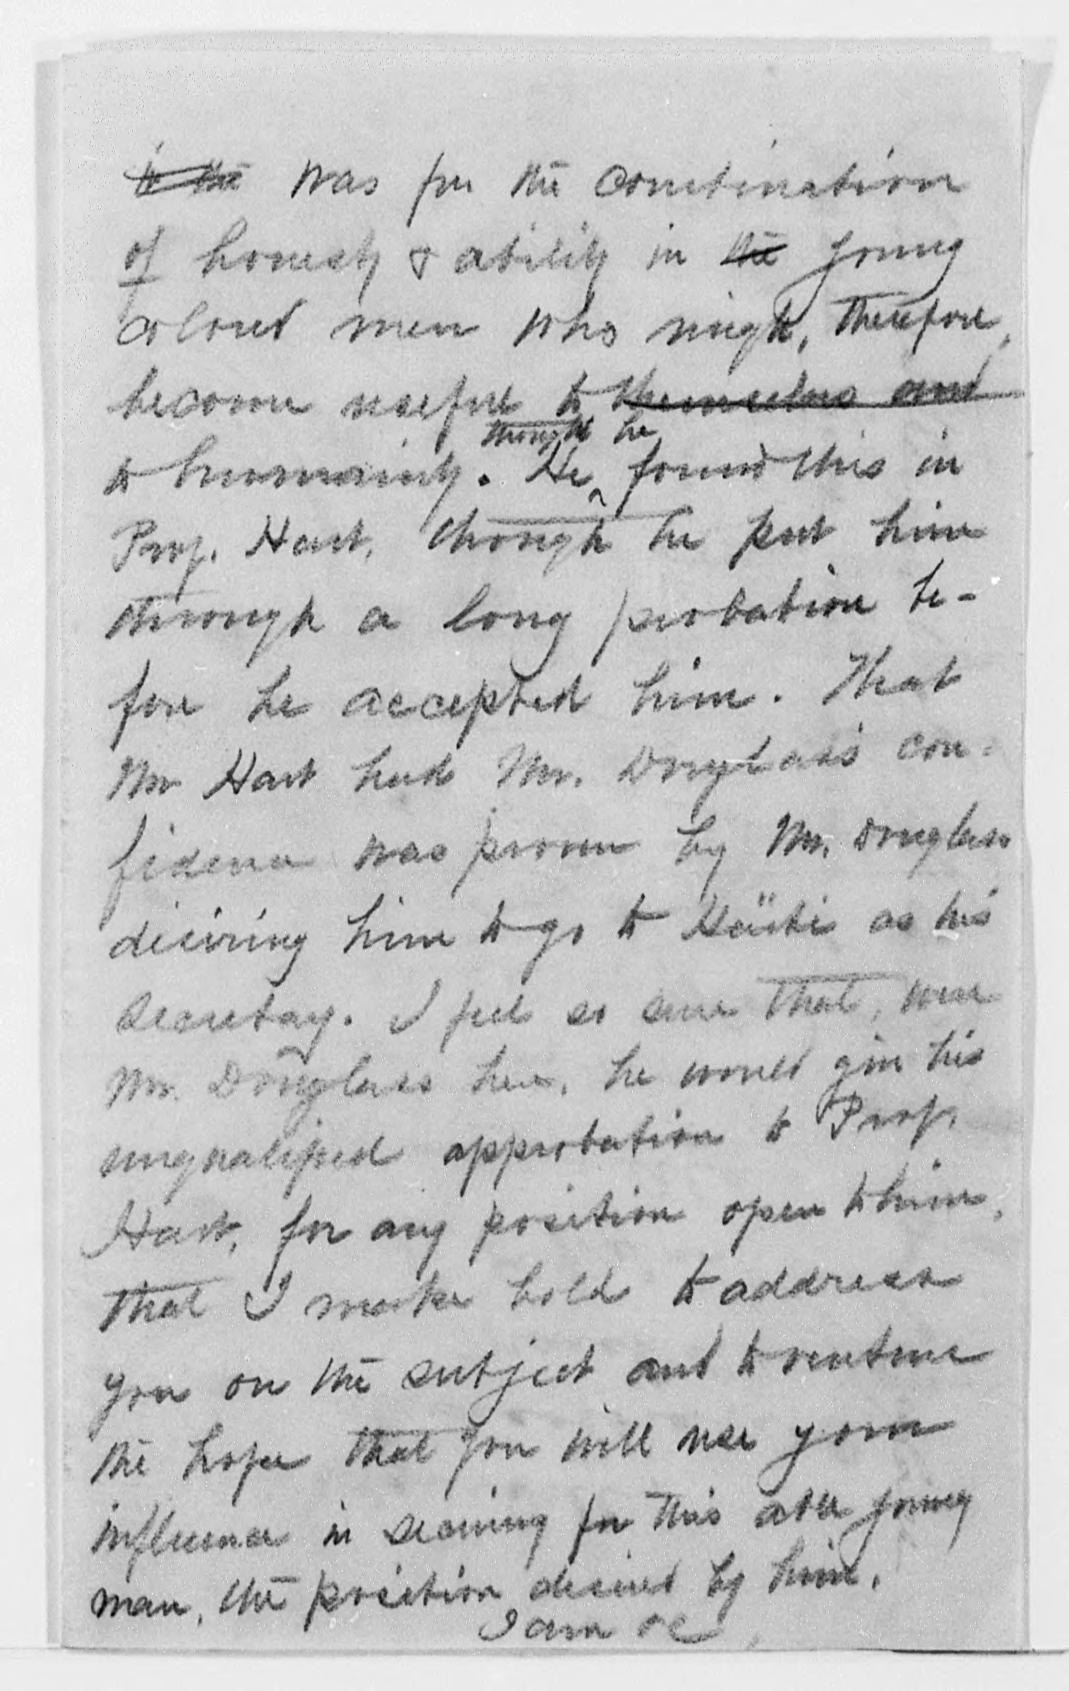 to the was for the combination
of honesty & ability in the young
colored men who might, therefore,
become useful to themselves and
to humanity. He thought he found this in
Prof. Hart, though he put him
through a long probation be-
fore he accepted him. That
Mr Hart had Mr. Douglass's con-
fidence was proven by Mr. Douglass
desiring him to go to Häiti as his
secretary. I feel so sure that, were
Mr. Douglass here, he would give his
unqualified approbation to Prof.
Hart, for any position open to him,
that I make bold to address
you on the subject and to venture
the hope that you will use your
influence in securing for this able young
man, the position desired by him.
I am &c